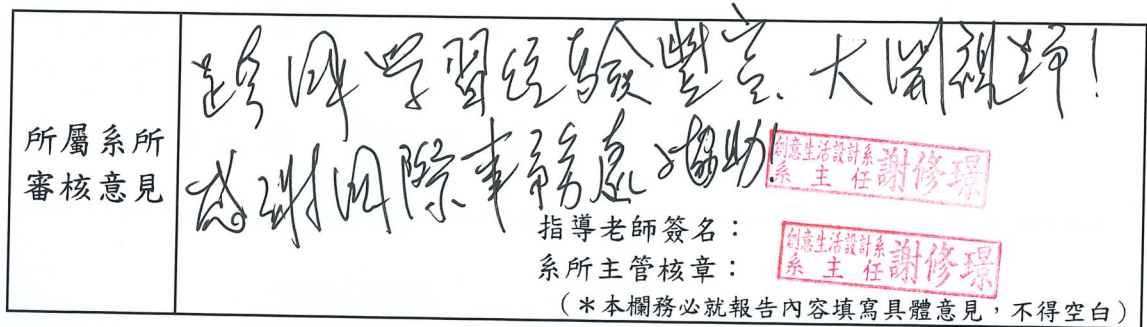 所屬系所
審核意見
跨國學習經驗豐富、大開視野!
感謝國際事務處之協助!
創意生活設計系
系主任 謝修璟
指導老師簽名：
系所主管核章：
創意生活設計系
系主任 謝修璟
（＊本欄務必就報告內容填寫具體意見，不得空白）